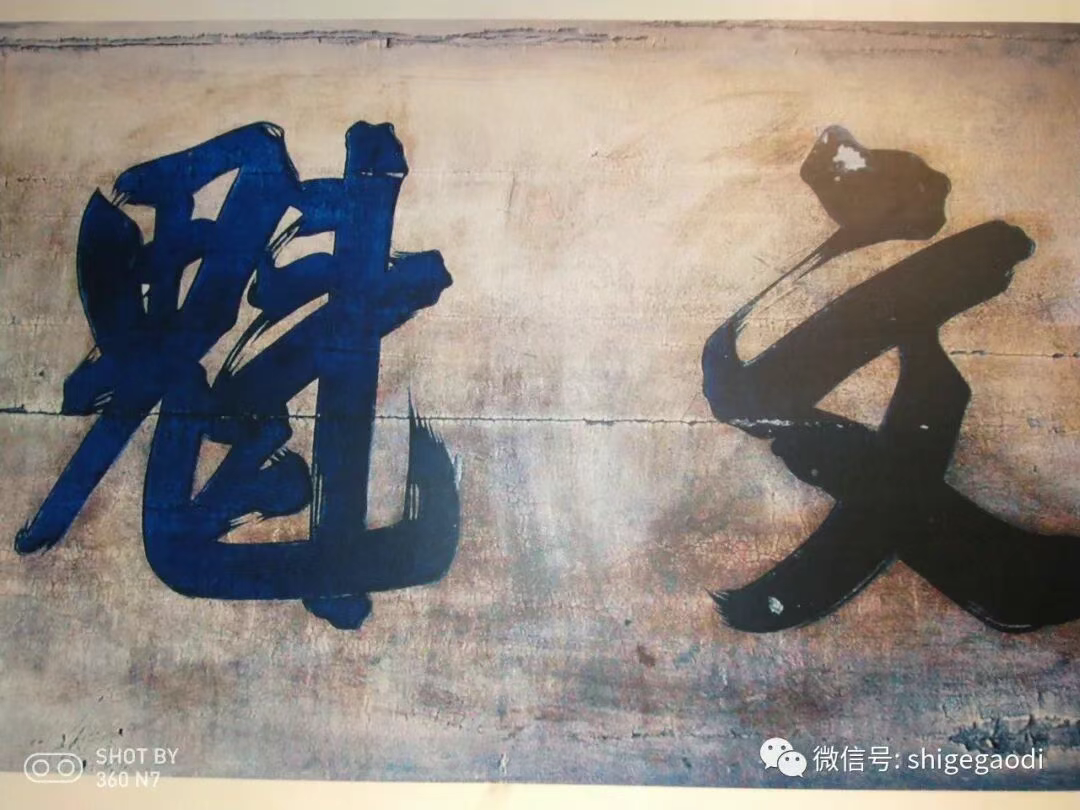 文魁
SHOT BY
360 N7
微信号: shigegaodi